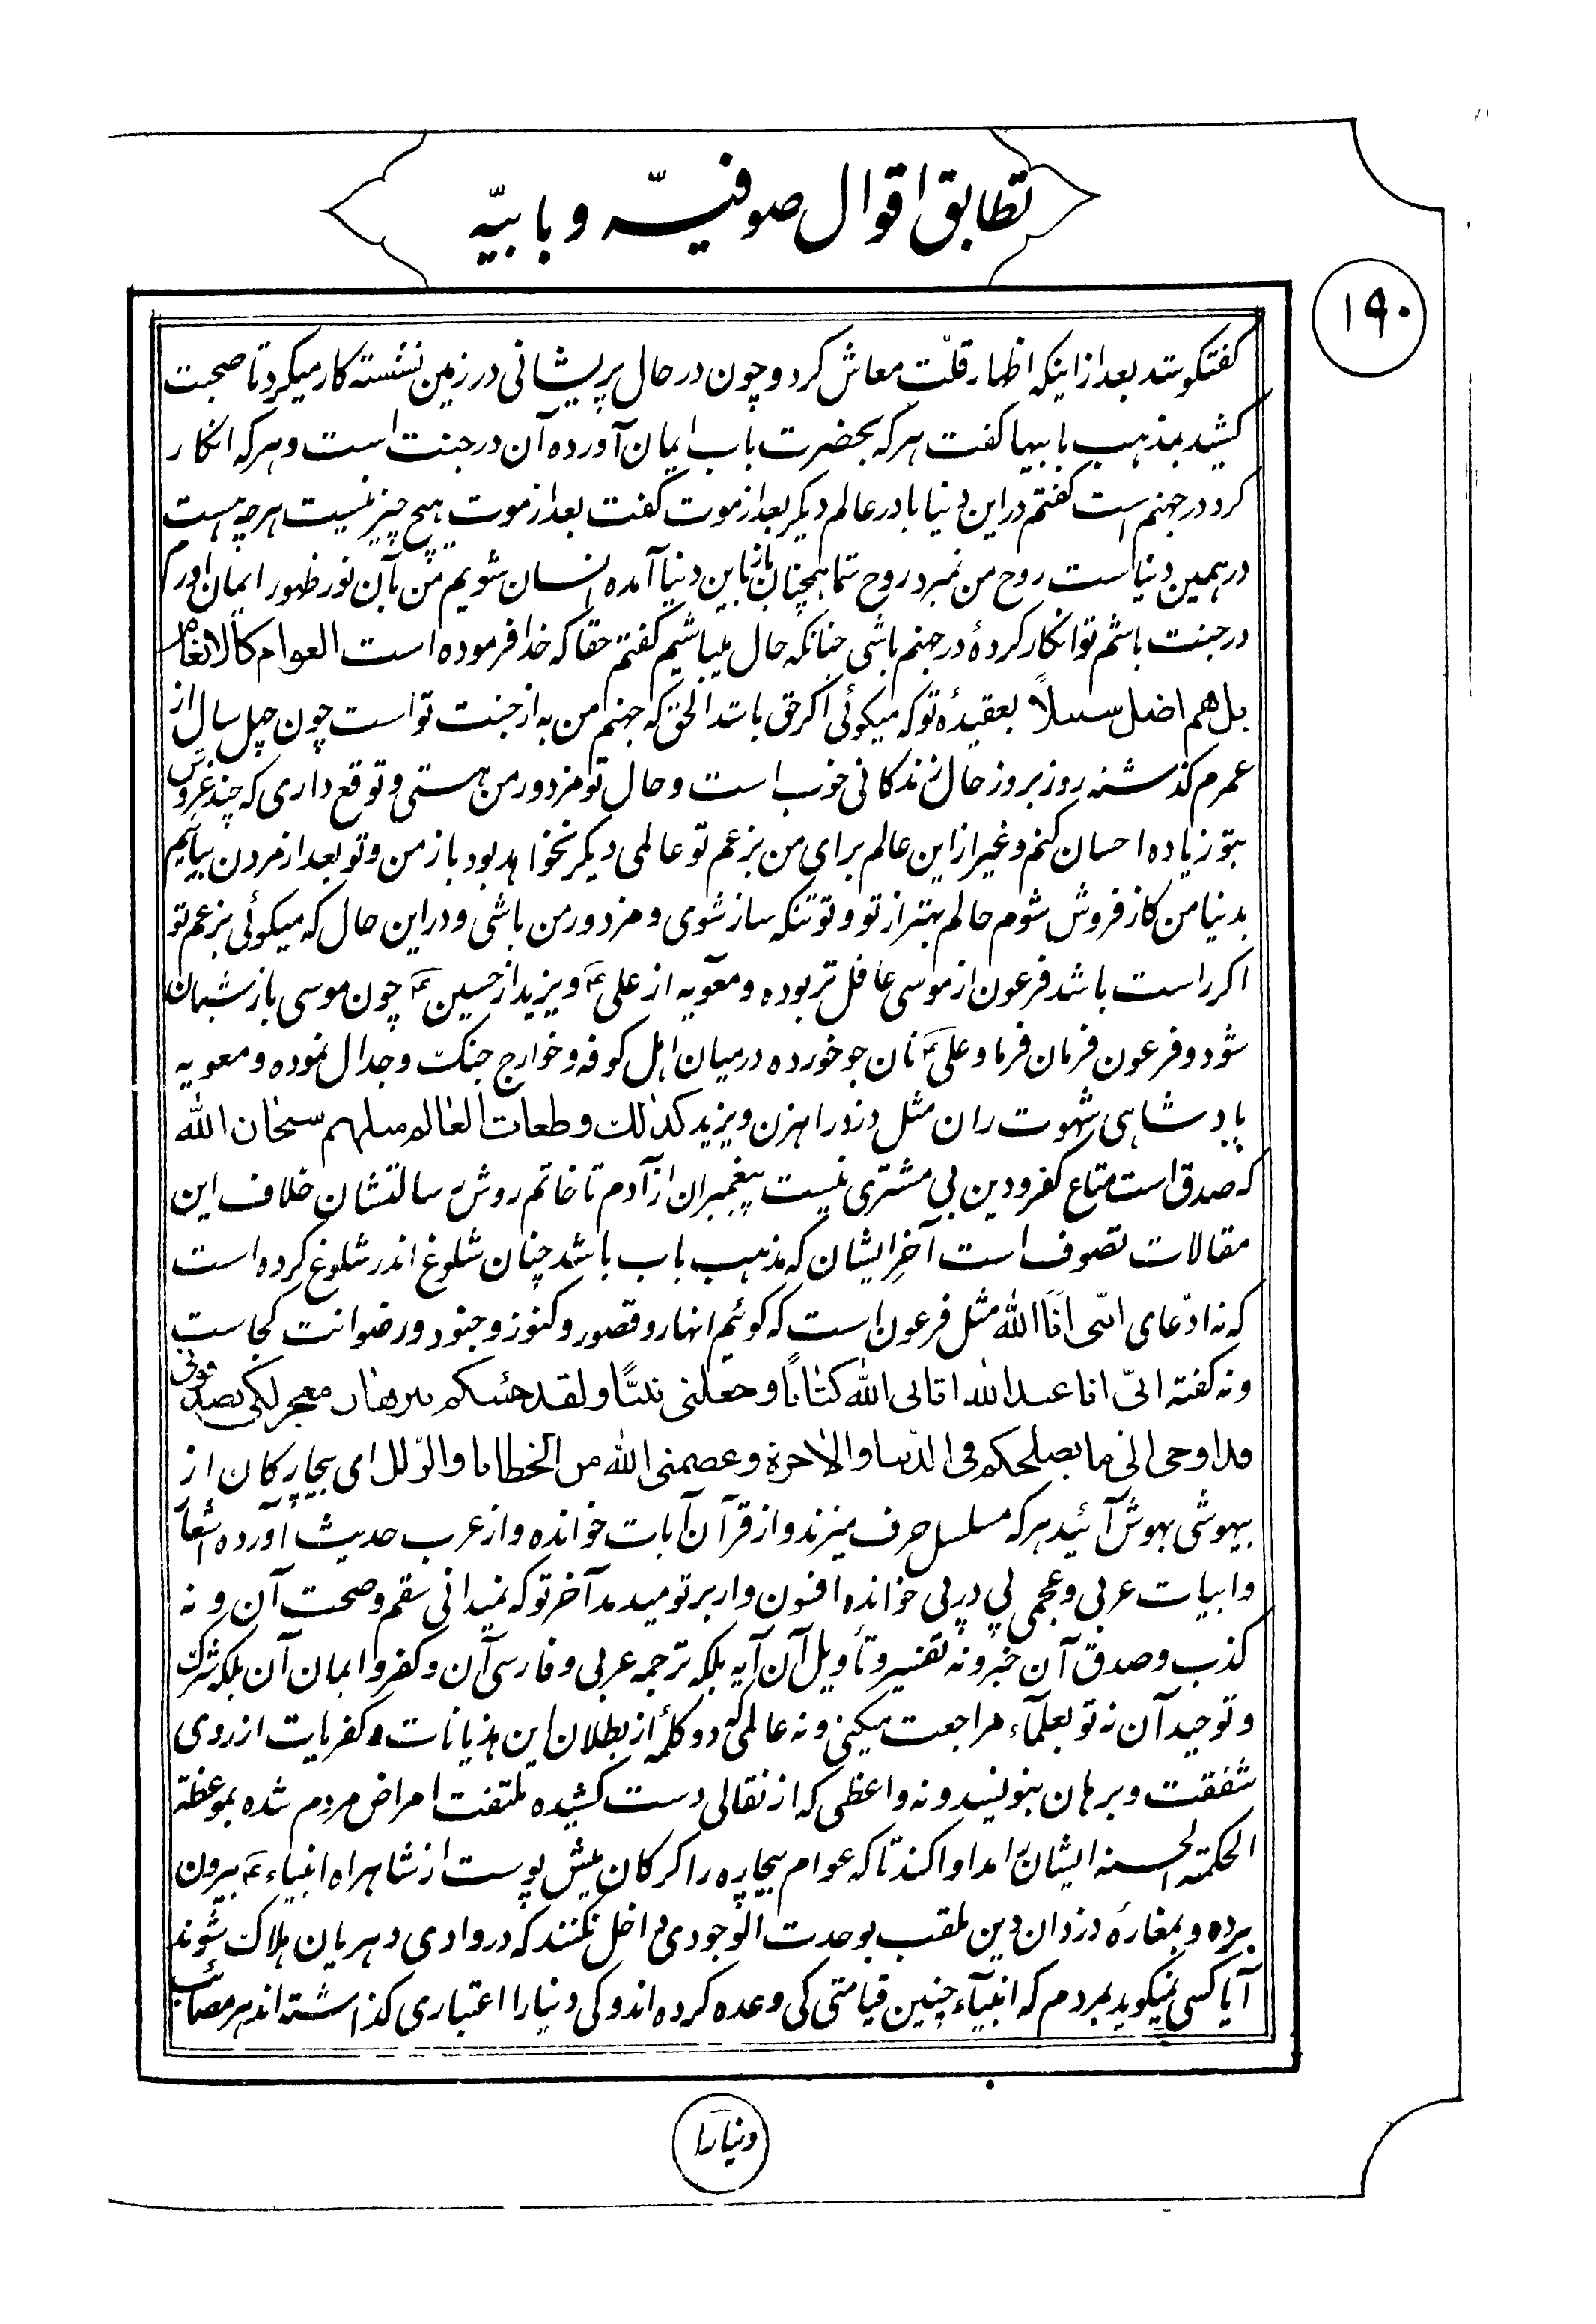 تطابق اقوال صوفیّه و بابیّه
۱۹۰
گفتگو شد بعد از اینکه اظهار قلّت معاش کرد و چون در حال پریشانی در زمین نشسته کار میکرد تا صحبت
کشید بمذهب بابیها گفت هر که بحضرت باب ایمان آورده آن در جنت است و هر که انکار
کرد در جهنم است گفتم در این دنیا یا در عالم دیگر بعد از موت گفت بعد از موت هیچ چیز نیست هر چه هست
در همین دنیا است روح من نمیرد روح شما همچنان باز باین دنیا آمده انسان شویم من بآن نور ظهور ایمان دارم
در جنت باشم تو انکار کردهٔ در جهنم باشی چنانکه حال میباشیم گفتم حقا که خدا فرموده است العوام کالانعام
بل هم اضل سبیلاً بعقیدهٔ تو که میگوئی اگر حق باشد الحق که جهنم من به از جنت تو است چون چهل سال از
عمرم گذشته روز بروز حال زندگانی خوب است و حال تو مزدور من هستی و توقع داری که چند غروش
بتو زیاده احسان کنم و غیر از این عالم برای من بزعم تو عالمی دیگر نخواهد بود باز من و تو بعد از مردن بیآیم
بدنیا من کاز فروش شوم حالم بهتر از تو و تو تنکه ساز شوی و مزدور من باشی و در این حال که میگوئی بزعم تو
اگر راست باشد فرعون از موسی عاقل تر بوده و معویه از علی ع و یزید از حسین ع چون موسی باز شبان
شود و فرعون فرمان فرما و علی ع نان جو خورده در میان اهل کوفه و خوارج جنگ و جدال نموده و معویه
پادشاهی شهوت ران مثل دزد راهزن و یزید کذلک و طغات العالم مثلهم سبحان الله
که صدق است متاع کفر و دین بی مشتری نیست پیغمبران از آدم تا خاتم روش رسالتشان خلاف این
مقالات تصوف است آخر ایشان که مذهب باب باشد چنان شلوغ اندر شلوغ کرده است
که نه ادّعای انّی اَنَا الله مثل فرعون است که گوئیم انهار و قصور و کنوز و جنود و رضوانت کجاست
و نه گفته انّی انا عبد الله اتانی الله کتاباً و جعلنی نبیّاً و لقد جئتکم ببرهان معجز لکی تصدقونی
قد اوحی الیّ ما یصلحکم فی الدّنیا و الاخرة و عصمنی الله من الخطایا و الزّلل ای بیچارگان از
بیهوشی بهوش آئید هر که مسلسل حرف میزند و از قرآن آیات خوانده و از عرب حدیث آورده اشعآ
و ابیات عربی و عجمی پی در پی خوانده افسون وار بر تو میدمد آخر تو که نمیدانی سقم و صحت آن و نه
کذب و صدق آن خبر و نه تفسیر و تأویل آن آیه بلکه ترجمه عربی و فارسی آن و کفر و ایمان آن بلکه شرک
و توحید آن نه تو بعلمآء مراجعت میکنی و نه عالمی که دو کلمهٔ از بطلان این هذیانات و کفریات از روی
شفقت و برهان بنویسد و نه واعظی که از نقالی دست کشیده ملتفت امراض مردم شده بموعظة
الحکمة الحسنه ایشان مداوا کند تا که عوام بیچاره را گرگان میش پوست از شاهراه انبیاء ع بیرون
برده و بمغارهٔ دزدان دین ملقب بوحدت الوجودی داخل نکنند که در وادی دهریان هلاک شوند
آیا کسی نمیگوید بمردم که انبیآء چنین قیامتی کی وعده کرده اند و کی دنیا را اعتباری گذاشته اند هر مصائب
دنیا را